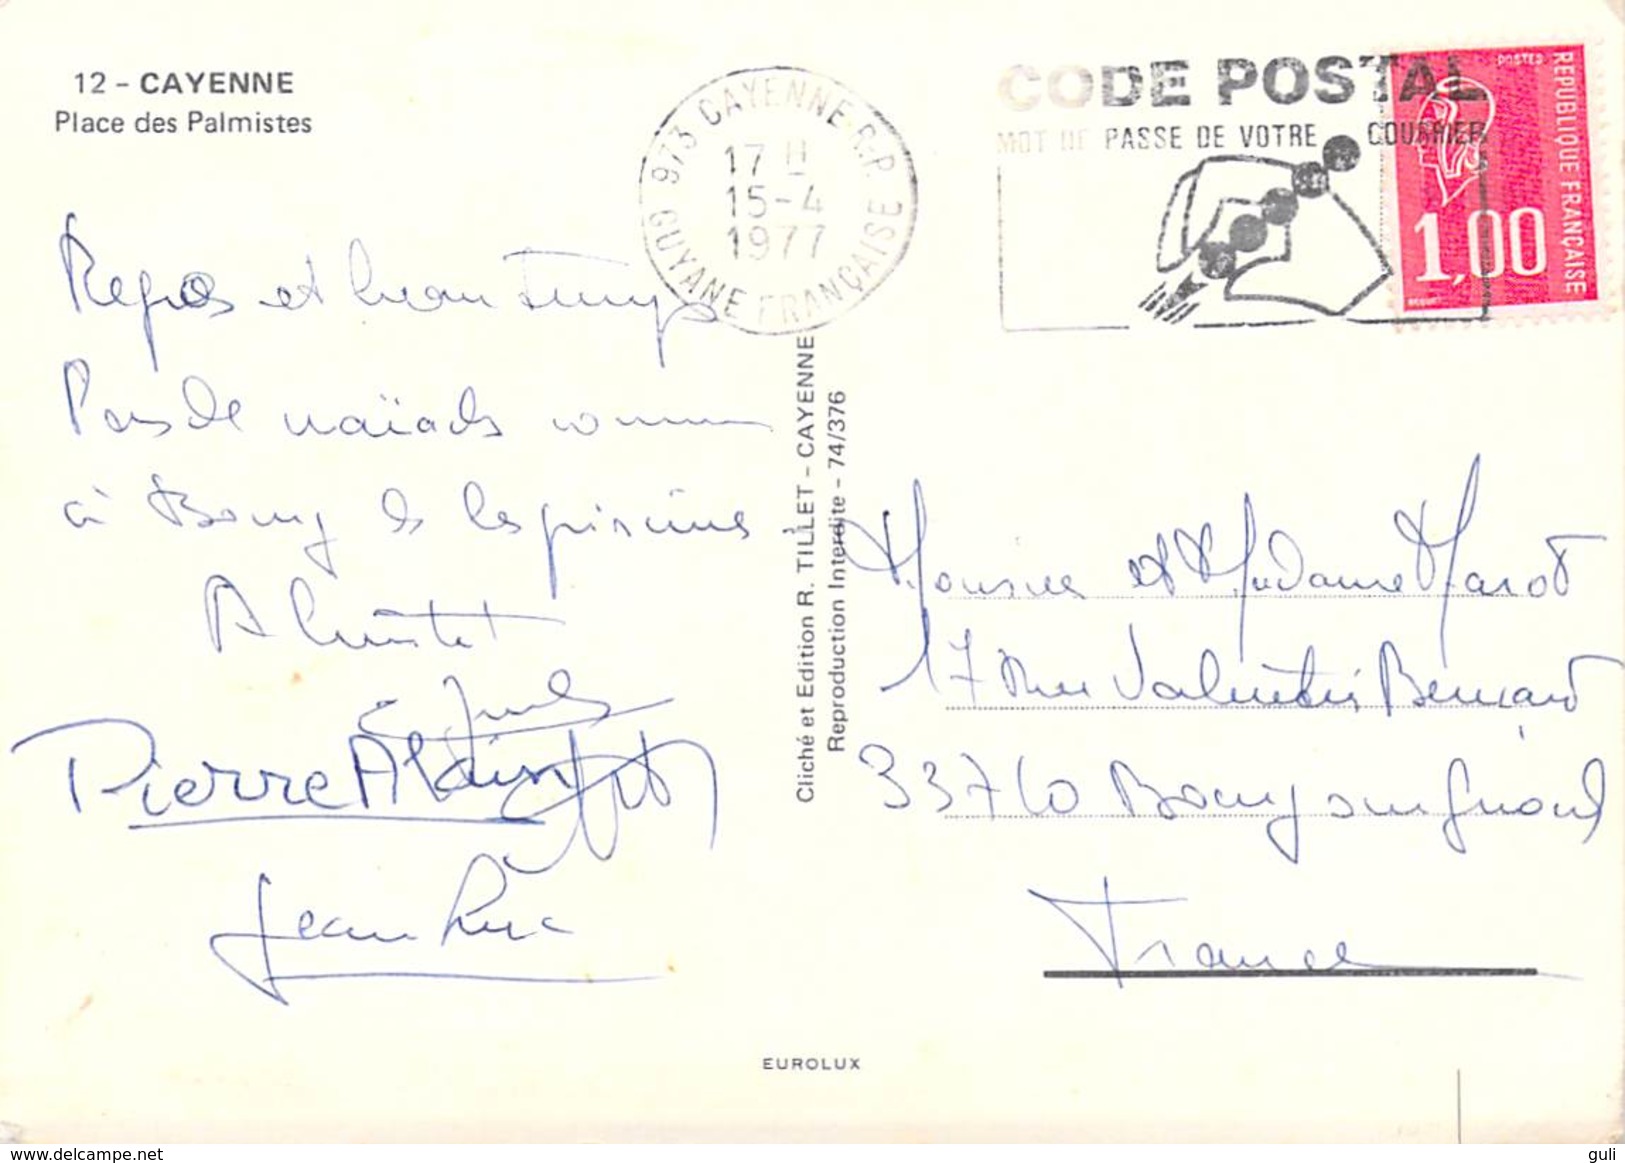 12 - CAYENNE
Place des Palmistes
973 CAYENNE R.P.
17 H
15-4
1977
GUYANE FRANÇAISE
CODE POSTAL
MOT DE PASSE DE VOTRE COURRIER
POSTES
REPUBLIQUE FRANÇAISE
1,00
Repos et beau temps
Pas de naïads comme
à Bourg & les piscines
A bientôt
Jules
Pierre Alain
Jean Luc
Cliché et Edition R. TILLET - CAYENNE
Reproduction Interdite - 74/376
Monsieur et Madame Marot
17 Rue Valentin Bernard
33710 Bourg sur Gironde
France
EUROLUX
www.delcampe.net
guli